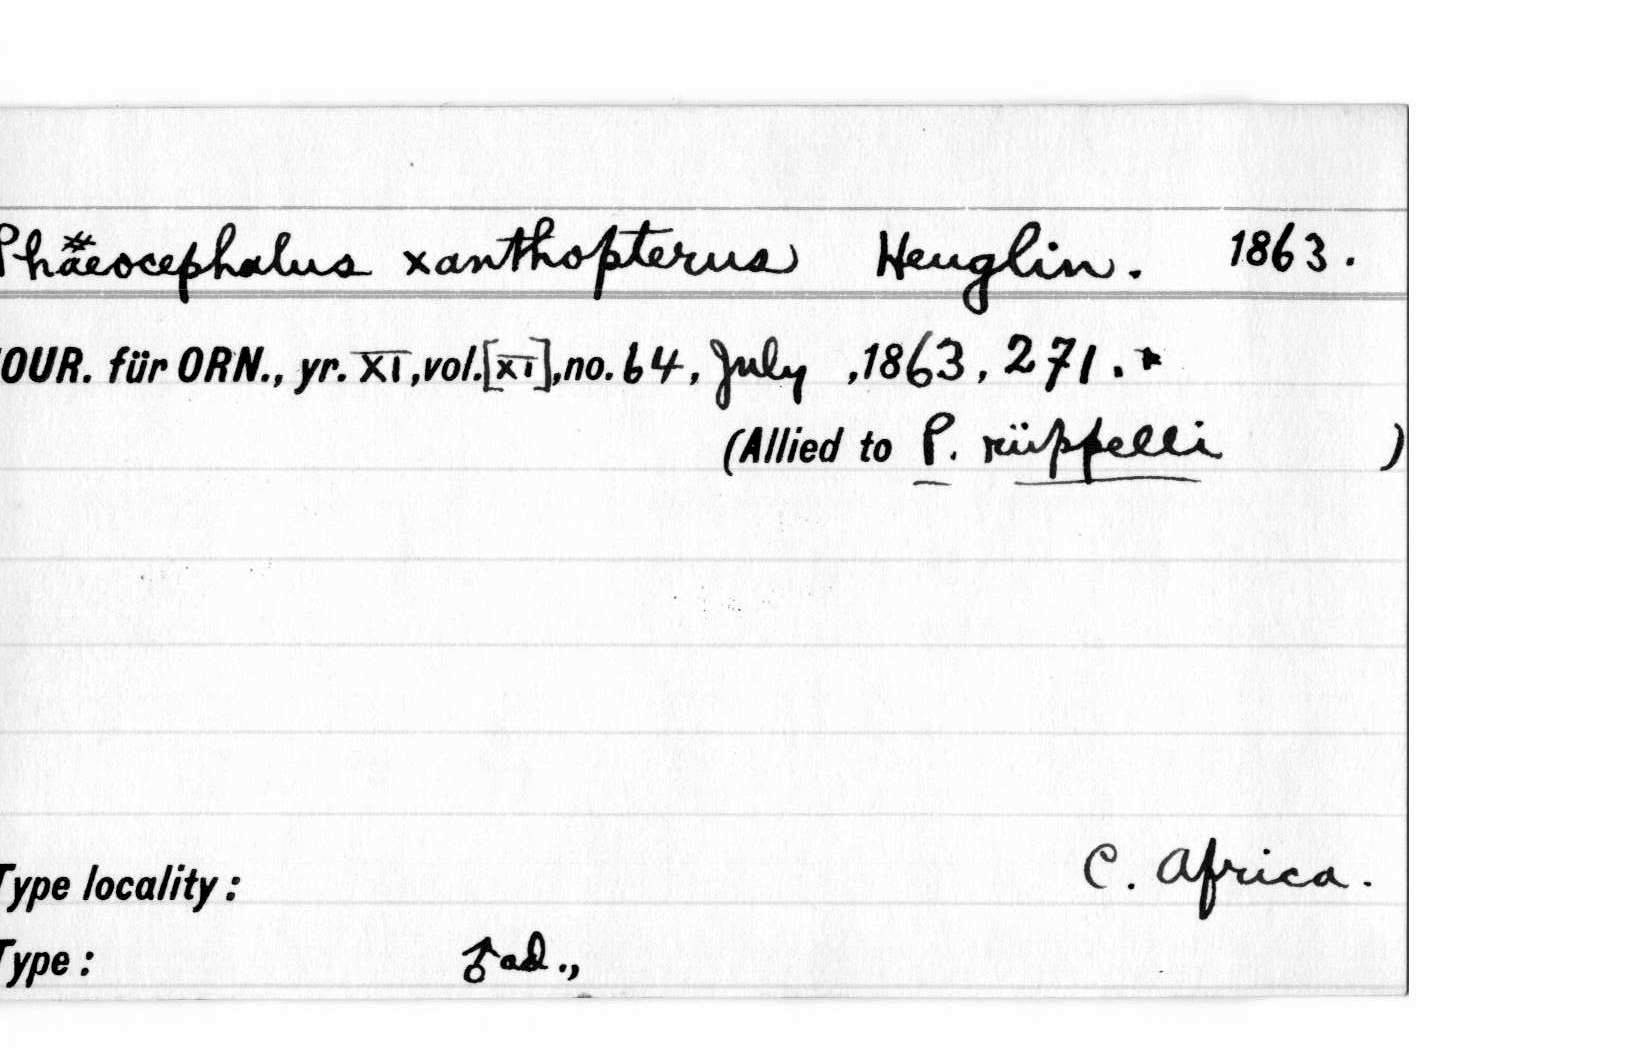 Phäeocephalus xanthopterus Heuglin. 1863.
OUR. für ORN., yr. XI, vol. [XI], no. 64, July, 1863, 271.*
(Allied to P. rüppelli)
Type locality: C. Africa.
Type: ♂ ad.,